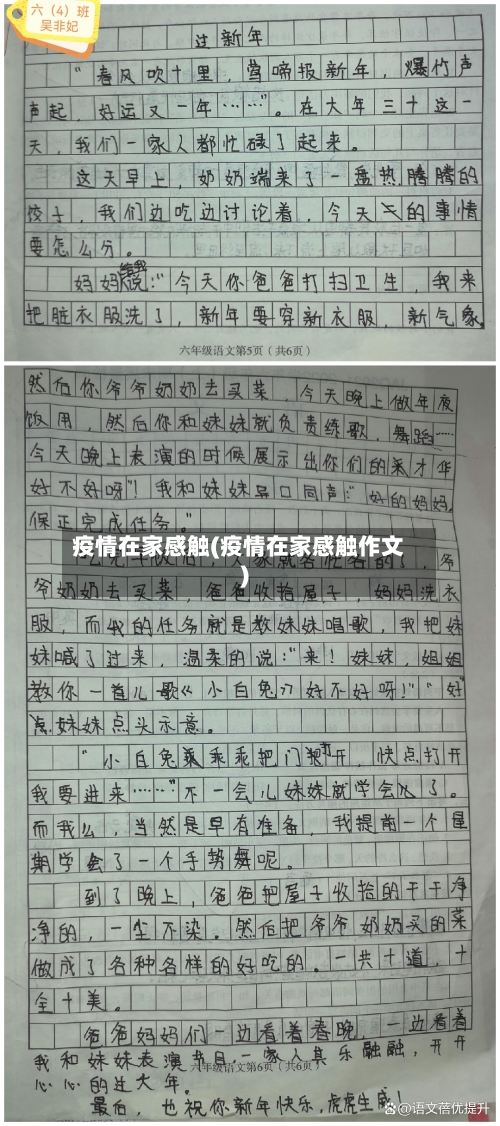 六（4）班
吴非妃
过新年
“春风吹十里，莺啼报新年，爆竹声
声起，好运又一年……”。在大年三十这一
天，我们一家人都忙碌了起来。
这天早上，奶奶端来了一盘热腾腾的
饺子，我们边吃边讨论着，今天的事情
要怎么分。
妈妈给我说：“今天你爸爸打扫卫生，我来
把脏衣服洗了，新年要穿新衣服，新气象。
六年级语文第5页（共6页）
然后你爷爷奶奶去买菜，今天晚上做年夜
饭用，然后你和妹妹就负责练歌，舞蹈……
今天晚上表演的时候展示出你们的来才华
好不好呀”！我和妹妹异口同声：“好的妈妈，
保正完成任务。”
疫情在家感触(疫情在家感触作文
)
爷奶奶去买菜，爸爸收拾屋子，妈妈洗衣
服，而我的任务就是教妹妹唱歌，我把妹
妹喊了过来，温柔的说：“来！妹妹，姐姐
教你一首儿歌《小白兔》好不好呀！”“好”
点妹妹点头示意。
“小白兔乖乖把门打开，快点打开
我要进来……”不一会儿妹妹就学会了。
而我么，当然是早有准备，我提前一个星
期学会了一个手势舞呢。
到了晚上，爸爸把屋子收拾的干干净
净的，一尘不染。然后把爷爷奶奶买的菜
做成了各种各样的好吃的。一共十道，十
全十美。
爸爸妈妈们一边看着春晚，一边看着
我和妹妹表演节目，一家人其乐融融，开开
六年级语文第6页（共6页）
心心的过大年。
最后，也祝你新年快乐，虎虎生威！
@语文蓓优提升